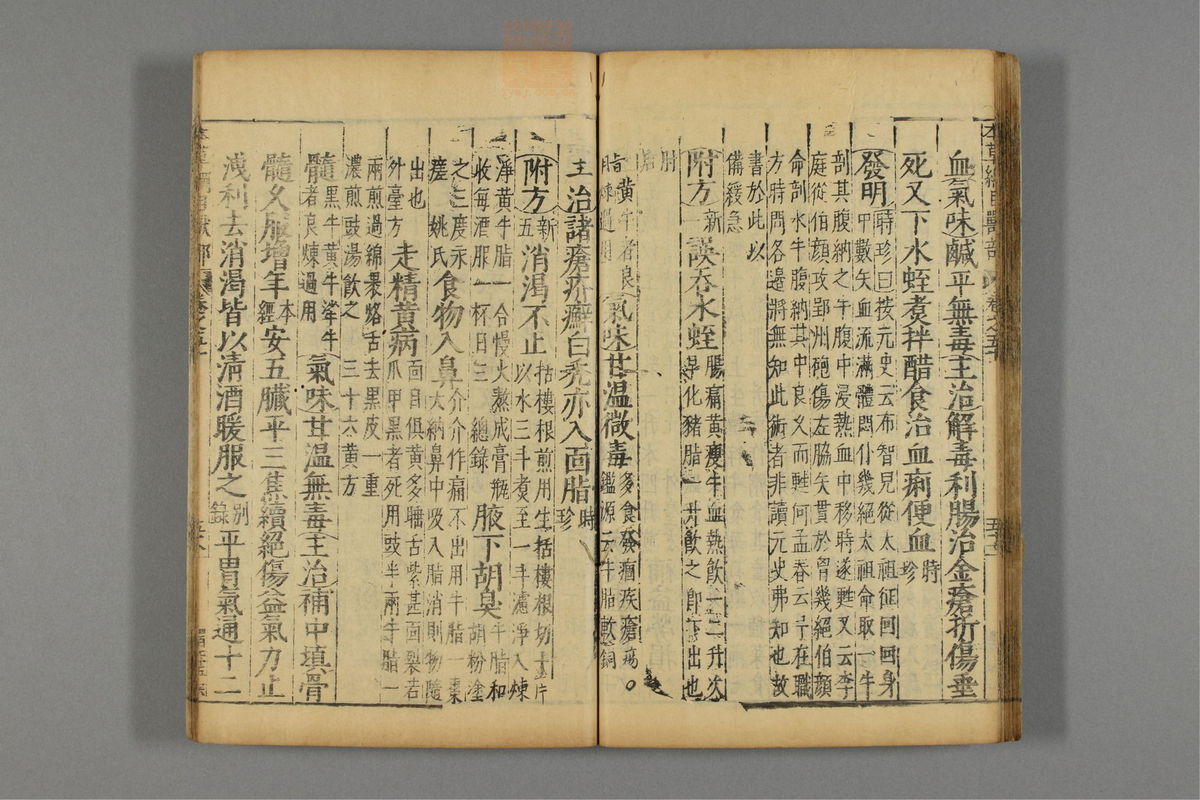 血氣味鹹平無毒主治解毒利腸治金瘡折傷垂
死又下水蛭煮拌醋食治血痢便血時珍
發明時珍曰按元史云布智兒從太祖征回回身
中數矢血流滿體悶仆幾絕太祖命取一牛
剖其腹納之牛腹中浸熱血中移時遂甦又云李
庭從伯顏攻郢州砲傷左脇矢貫於胷幾絕伯顏
命剖水牛腹納其中良久而甦何孟春云予在職
方時問各邊將無知此術者非讀元史弗知也故
書於此以
備緩急
附方新一誤吞水蛭腸痛黃瘦牛血熱飲一二升次
早化豬脂一升飲之即下出也
脂黃牛者良煉過用氣味甘溫微毒多食發痼疾瘡瘍○
鑑源云牛脂軟銅
主治諸瘡疥癬白禿亦入面脂時珍
附方新五消渴不止栝樓根煎用生栝樓根切十斤
以水三斗煮至一斗濾淨入煉
淨黃牛脂一合慢火熬成膏瓶
收每酒服一杯日三總錄腋下胡臭牛脂和胡粉塗
之三度永
瘥姚氏食物入鼻介介作痛不出用牛脂一棗
大納鼻中吸入脂消則物隨
出也
外臺方走精黃病面目俱黃多睡舌紫甚面裂若
爪甲黑者死用豉半兩牛脂一
兩煎過綿裹烙舌去黑皮一重
濃煎豉湯飲之三十六黃方
髓黑牛黃牛牸牛
者良煉過用氣味甘溫無毒主治補中填骨
髓久服增年本經安五臟平三焦續絕傷益氣力止
洩利去消渴皆以清酒暖服之別錄平胃氣通十二